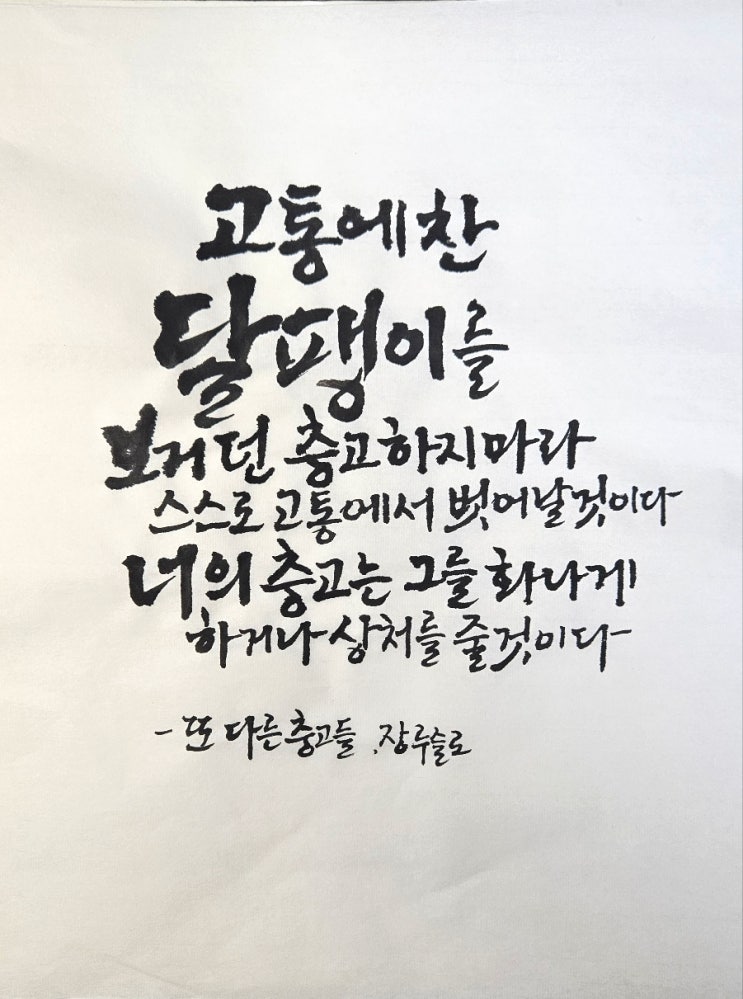 고통에 찬
달팽이를
보거던 충고하지마라
스스로 고통에서 벗어날것이다
너의 충고는 그를 화나게
하거나 상처를 줄것이다
- 또 다른 충고들 , 장루슬로